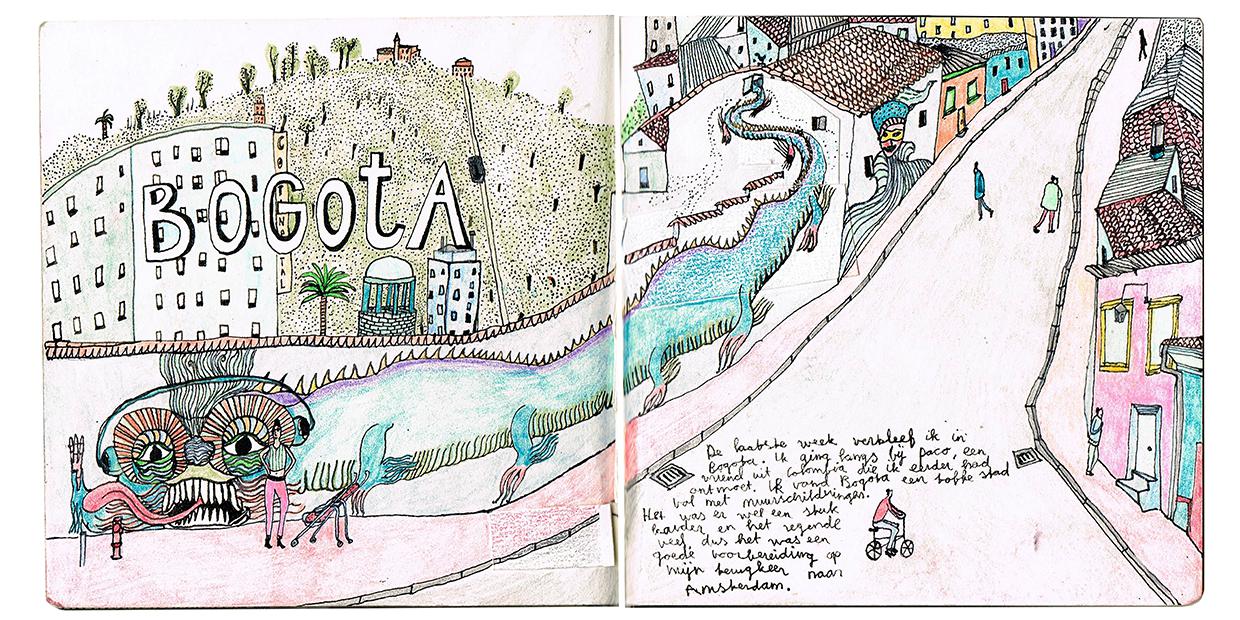 BOGOtA
De laatste week verbleef ik in
Bogota. Ik ging langs bij Paco, een
vriend uit Colombia die ik eerder had
ontmoet. Ik vond Bogota een toffe stad
vol met muurschilderinges.
Het was er wel een stuk
kouder en het regende
veel dus het was een
goede voorbereiding op
mijn terugkeer naar
Amsterdam.